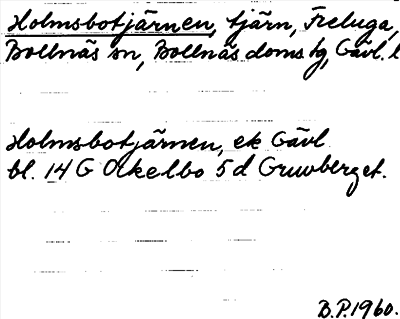 Holmsbotjärnen, tjärn, Freluga,
Bollnäs sn, Bollnäs doms tg, Gävl. l
Holmsbotjärnen, ek Gävl
bl. 14 G Ockelbo 5 d Gruvberget.
B.P. 1960.